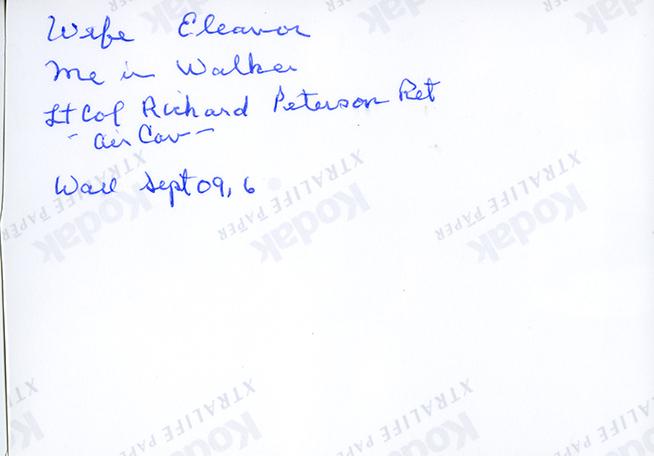 Wife Eleanor
Me in Walker
Lt Col Richard Peterson Ret
- Air Cav -
Wall Sept 09, 6
XTRALIFE PAPER
Kodak
XTRALIFE PAPER
Kodak
XTRALIFE PAPER
Kodak
XTRALIFE PAPER
Kodak
XTRALIFE PAPER
Kodak